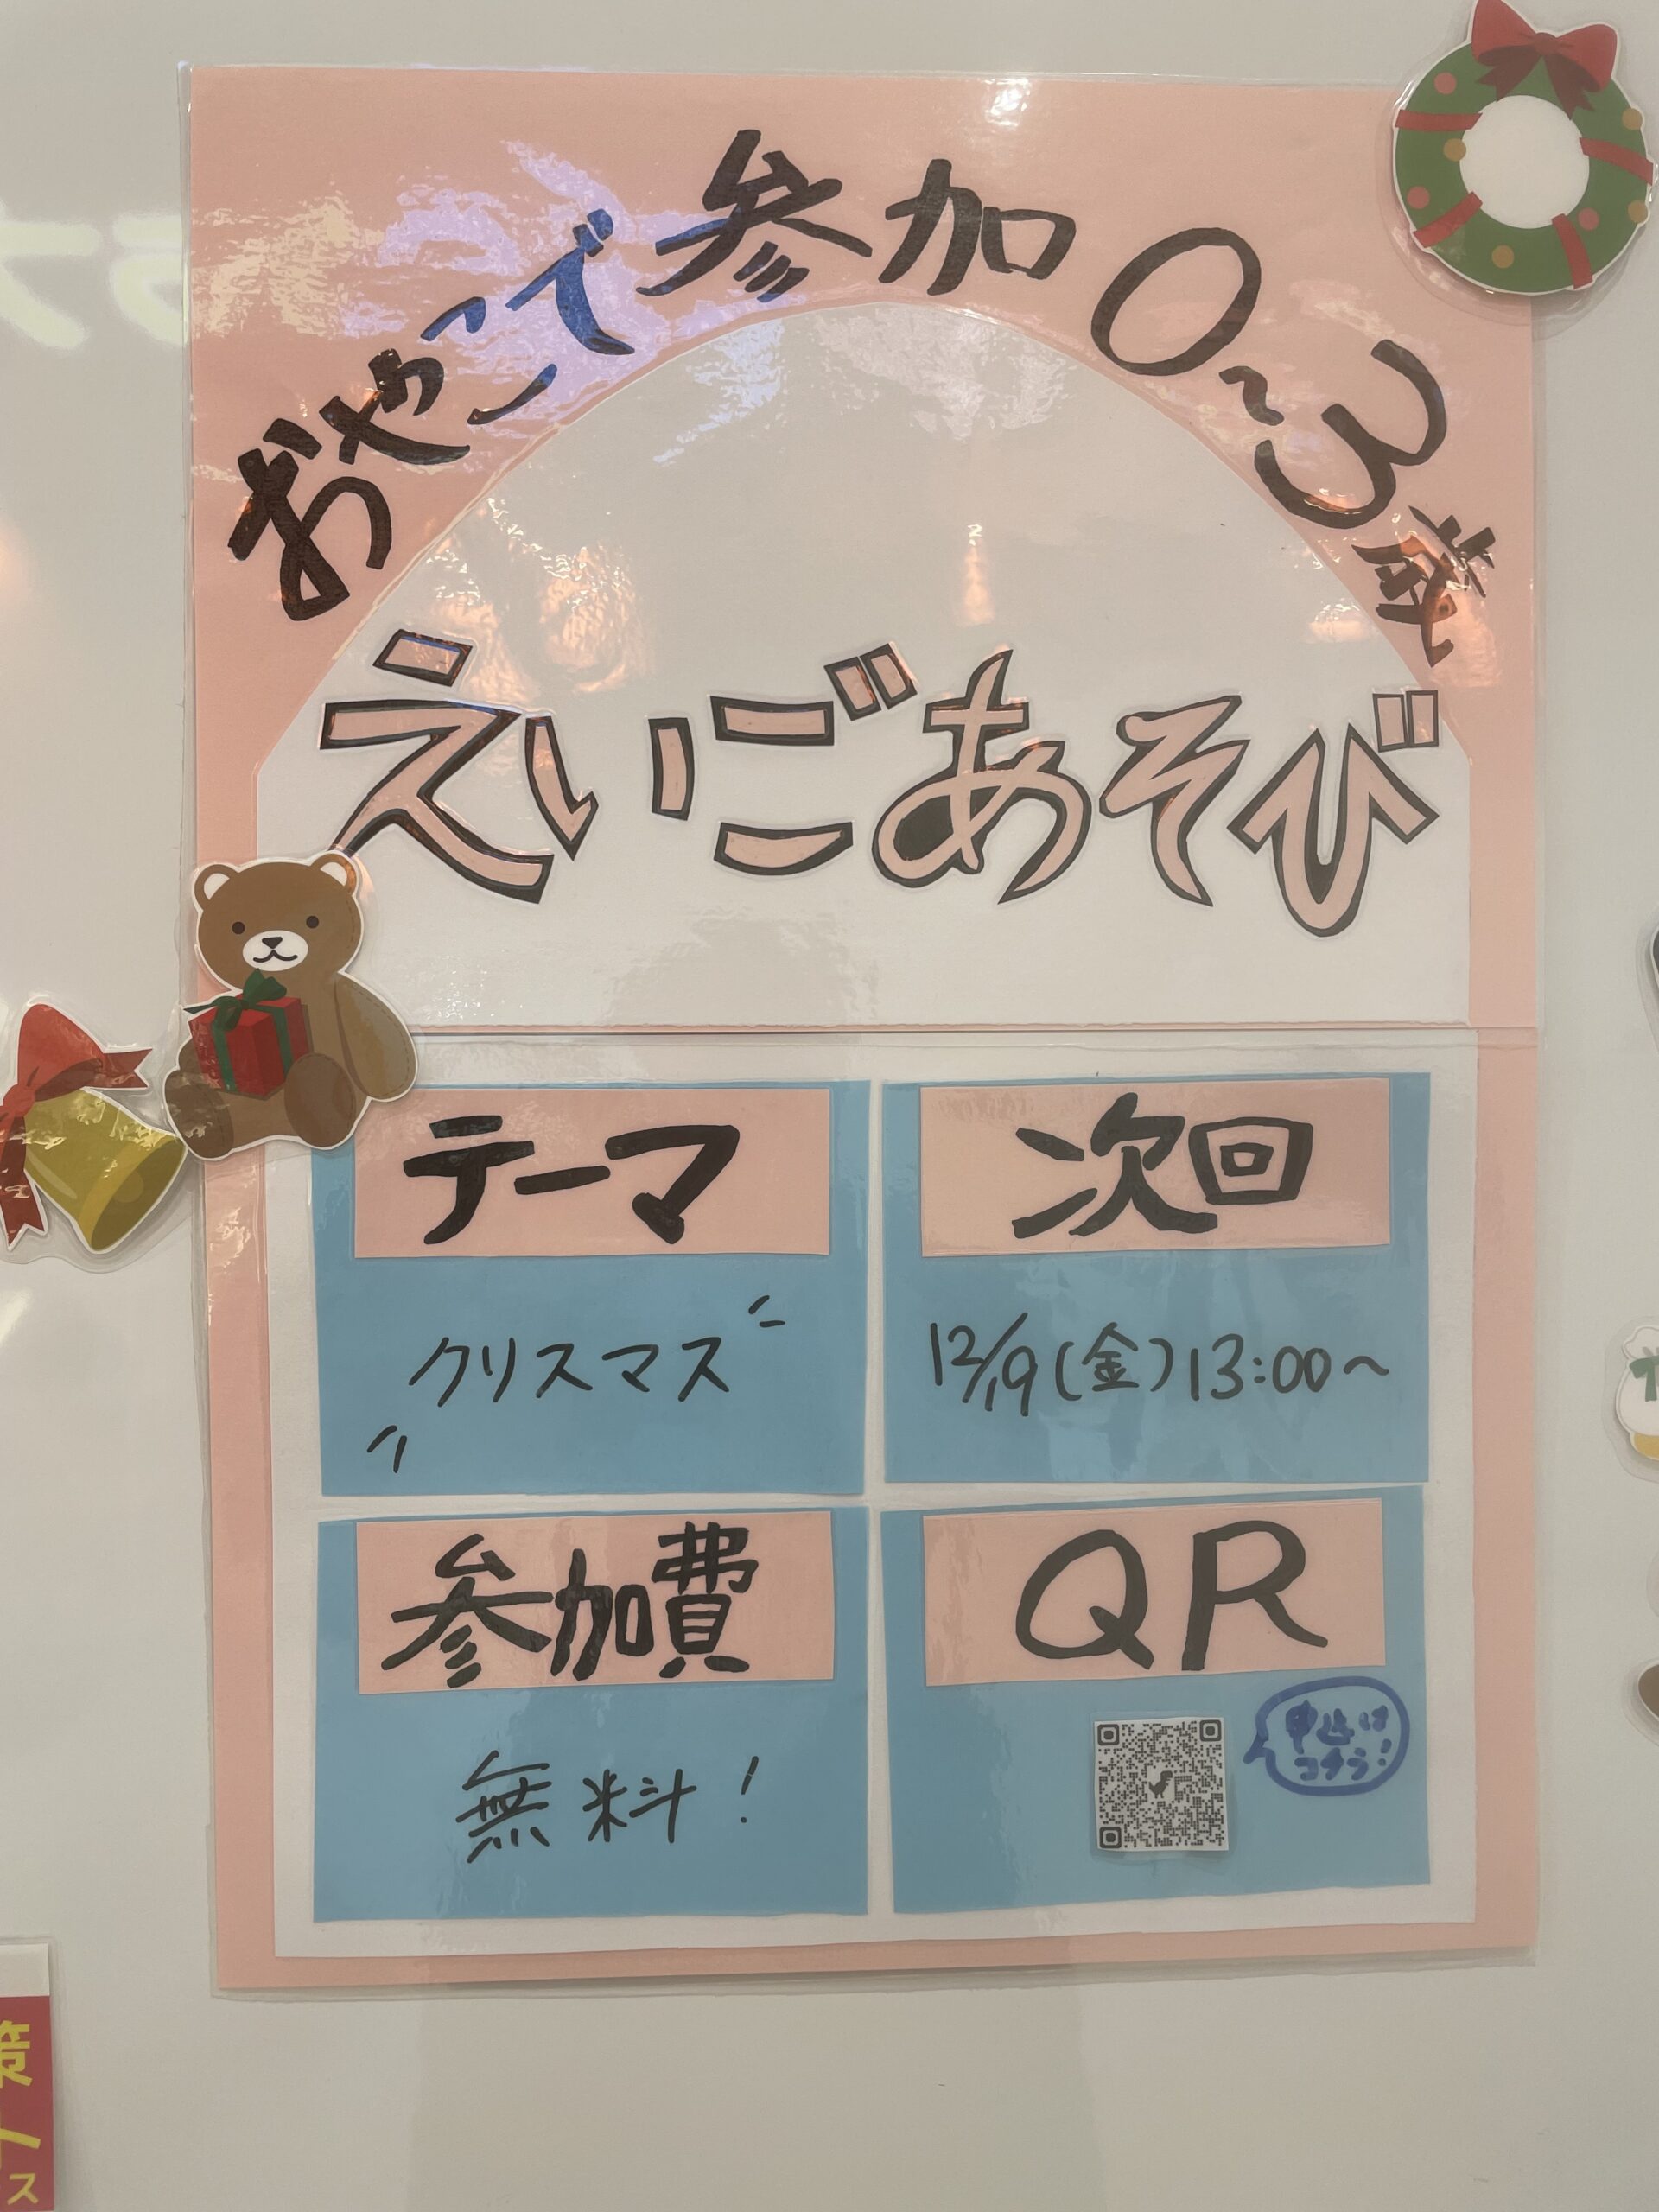 おやこで参加0~3歳
えいごあそび
テーマ
クリスマス
次回
12/19(金)13:00~
参加費
無料!
QR
申込は
コチラ!
策
ス